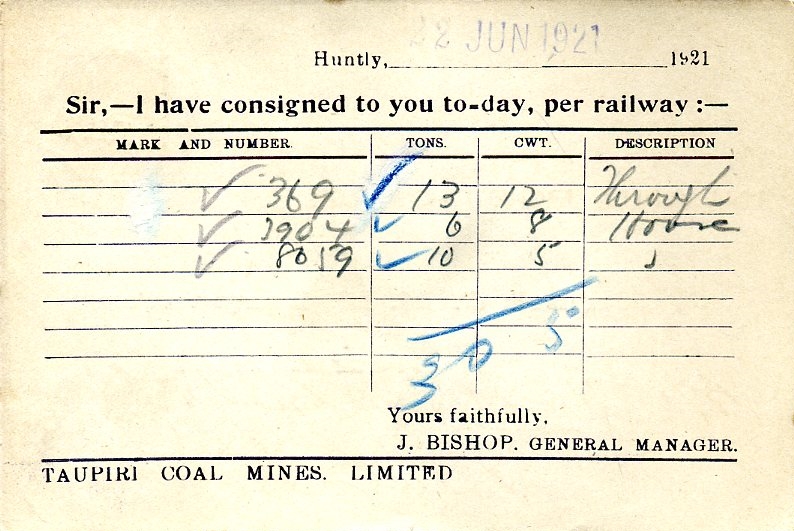 22 JUN 1921
Huntly, 1921
Sir,—I have consigned to you to-day, per railway :—
MARK AND NUMBER. TONS. CWT. DESCRIPTION
369 13 12 Through
3904 6 8 House
8059 10 5 "
30 5
Yours faithfully,
J. BISHOP. GENERAL MANAGER.
TAUPIRI COAL MINES. LIMITED